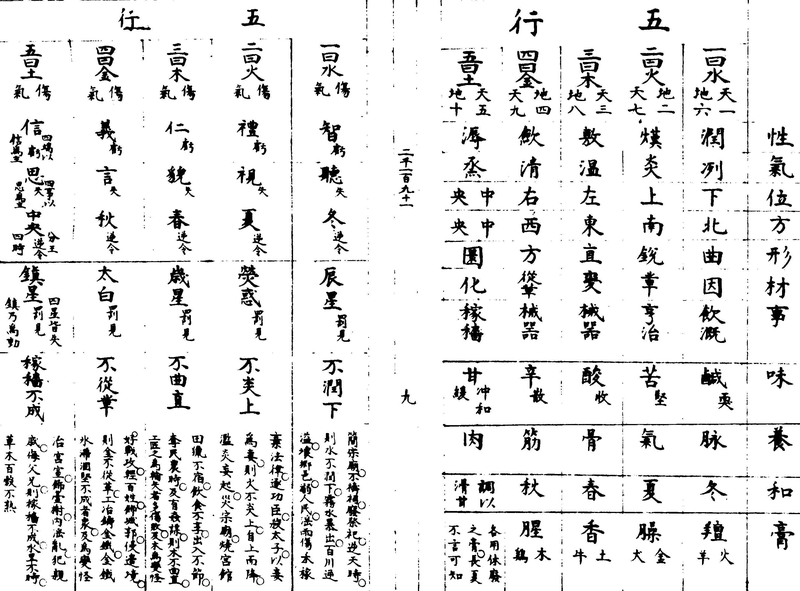 五行
性氣位方形材事味養和膏
一曰水 天一地六 潤冽下北曲因飲溉 鹹耎 脉 冬 羶 火羊
二曰火 地二天七 熯炎上南銳革亨冶 苦堅 氣 夏 臊 金犬
三曰木 天三地八 敷溫左東直變械器 酸收 骨 春 香 土牛
四曰金 地四天九 斂清右西方從革械器 辛散 筋 秋 腥 木鷄
五曰土 天五地十 溽蒸中央中央圜化稼穡 甘冲和緩 肉 調以滑甘 各用休廢之膏長夏不言可知
二千一百九十一
九
五行
一曰水 傷氣 智虧 聽失 冬逆令 辰星罰見 不潤下
簡宗廟不禱祠廢祭祀逆天時
則水不潤下霧水暴出百川逆
溢壞鄉邑溺人民淫雨傷禾稼
二曰火 傷氣 禮虧 視失 夏逆令 熒惑罰見 不炎上
棄法律逐功臣殺太子以妾
為妻則火不炎上自上而降
濫炎妄起災宗廟燒宮館
三曰木 傷氣 仁虧 貌失 春逆令 歲星罰見 不曲直
田獵不宿飲食不享出入不節
奪民農時及有姦謀則木不曲直
工匠之為輪矢者多傷敗及木為變怪
四曰金 傷氣 義虧 言失 秋逆令 太白罰見 不從革
好戰攻輕百姓飾城郭侵邊境
則金不從革冶鑄金鐵金鐵
冰滯涸堅不成者衆及為變怪
五曰土 傷氣 信虧 四端以信為主 思失 四事以思為主 中央逆令 分王四時 鎮星罰見 四星皆失鎮乃為動 稼穡不成
治宮室飾臺榭內淫亂犯親
戚侮父兄則稼穡不成水旱不時
草木百穀不熟